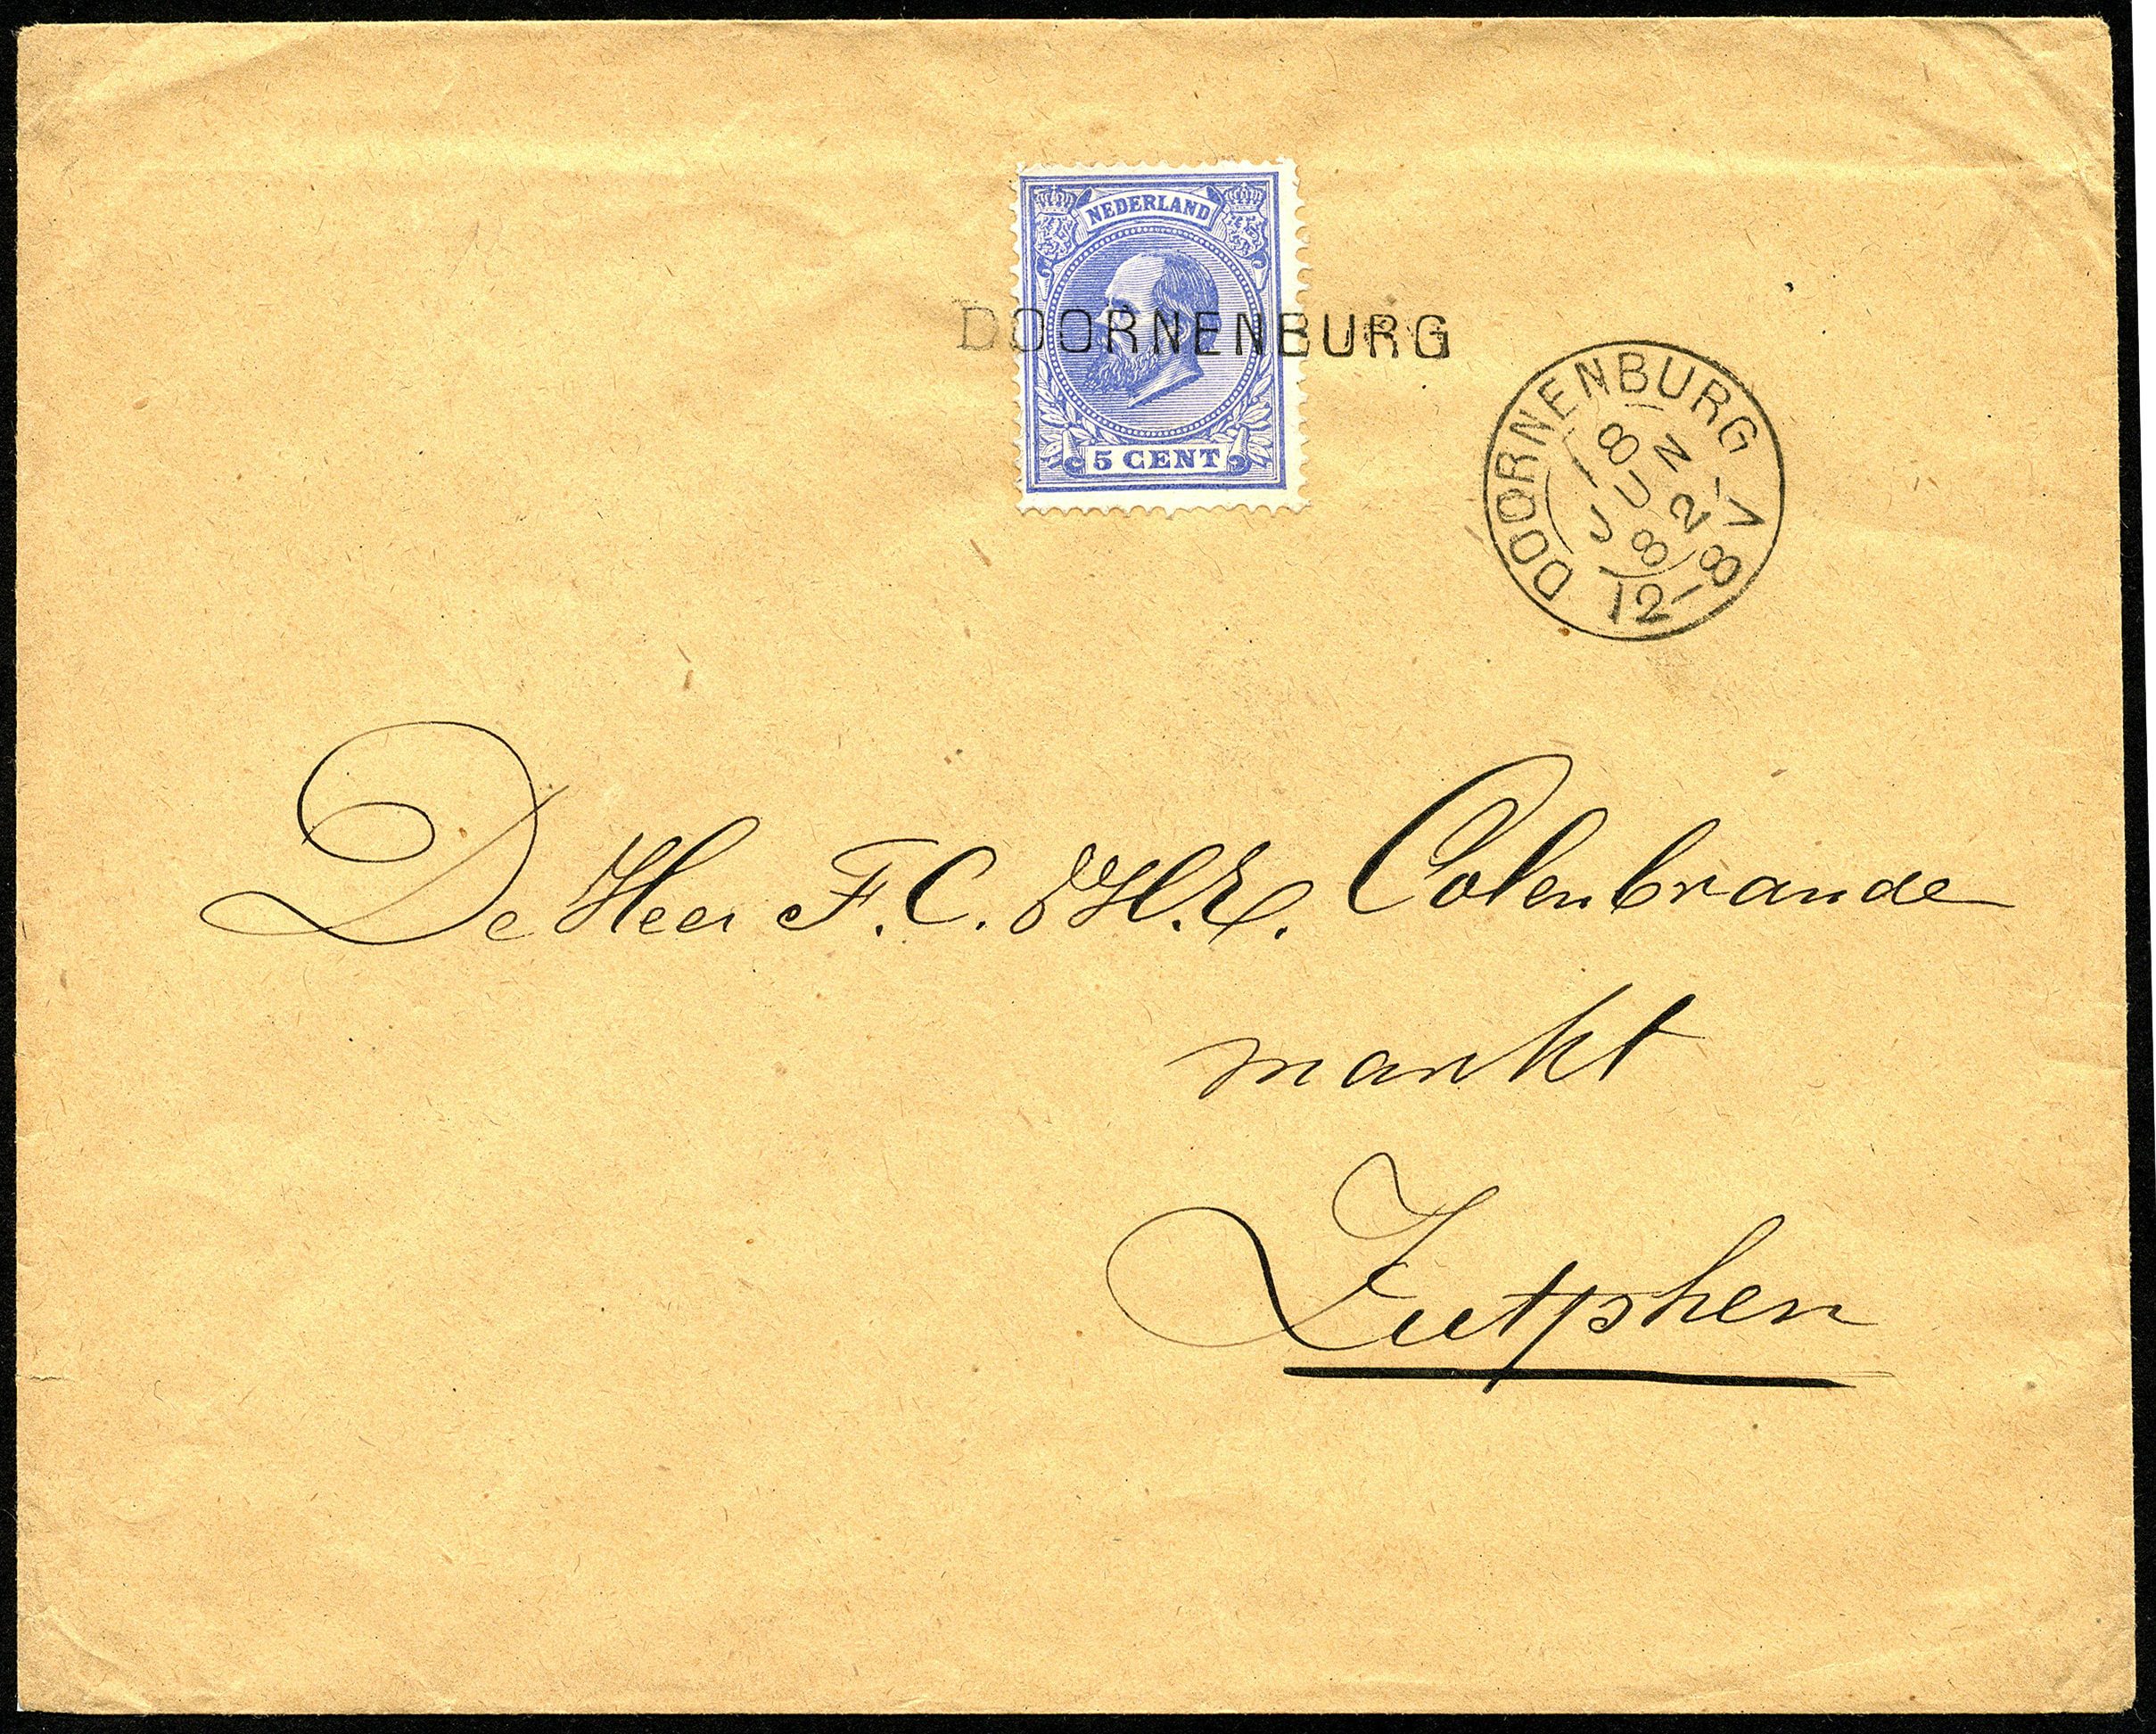 NEDERLAND
DOORNENBURG
5 CENT
DOORNENBURG
18
JUN
82
12-8 V
De Heer F. C. H. E. Colenbrande
markt
Zutphen